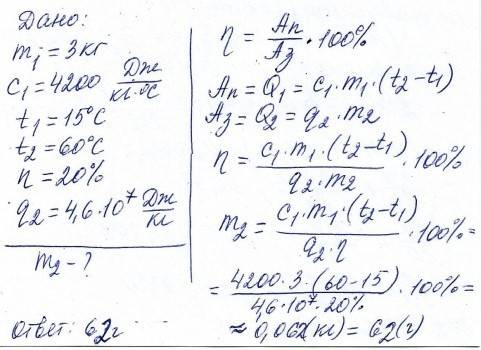 Дано:
m₁ = 3кг
c₁ = 4200 Дж/кг·°C
t₁ = 15°C
t₂ = 60°C
η = 20%
q₂ = 4,6·10⁷ Дж/кг
m₂ - ?
Ответ: 62г
η = Aп/Aз · 100%
Aп = Q₁ = c₁·m₁·(t₂-t₁)
Aз = Q₂ = q₂·m₂
η = c₁·m₁·(t₂-t₁)/q₂·m₂ · 100%
m₂ = c₁·m₁·(t₂-t₁)/q₂·η · 100% =
= 4200·3·(60-15)/4,6·10⁷·20% · 100% =
≈ 0,062(кг) = 62(г)